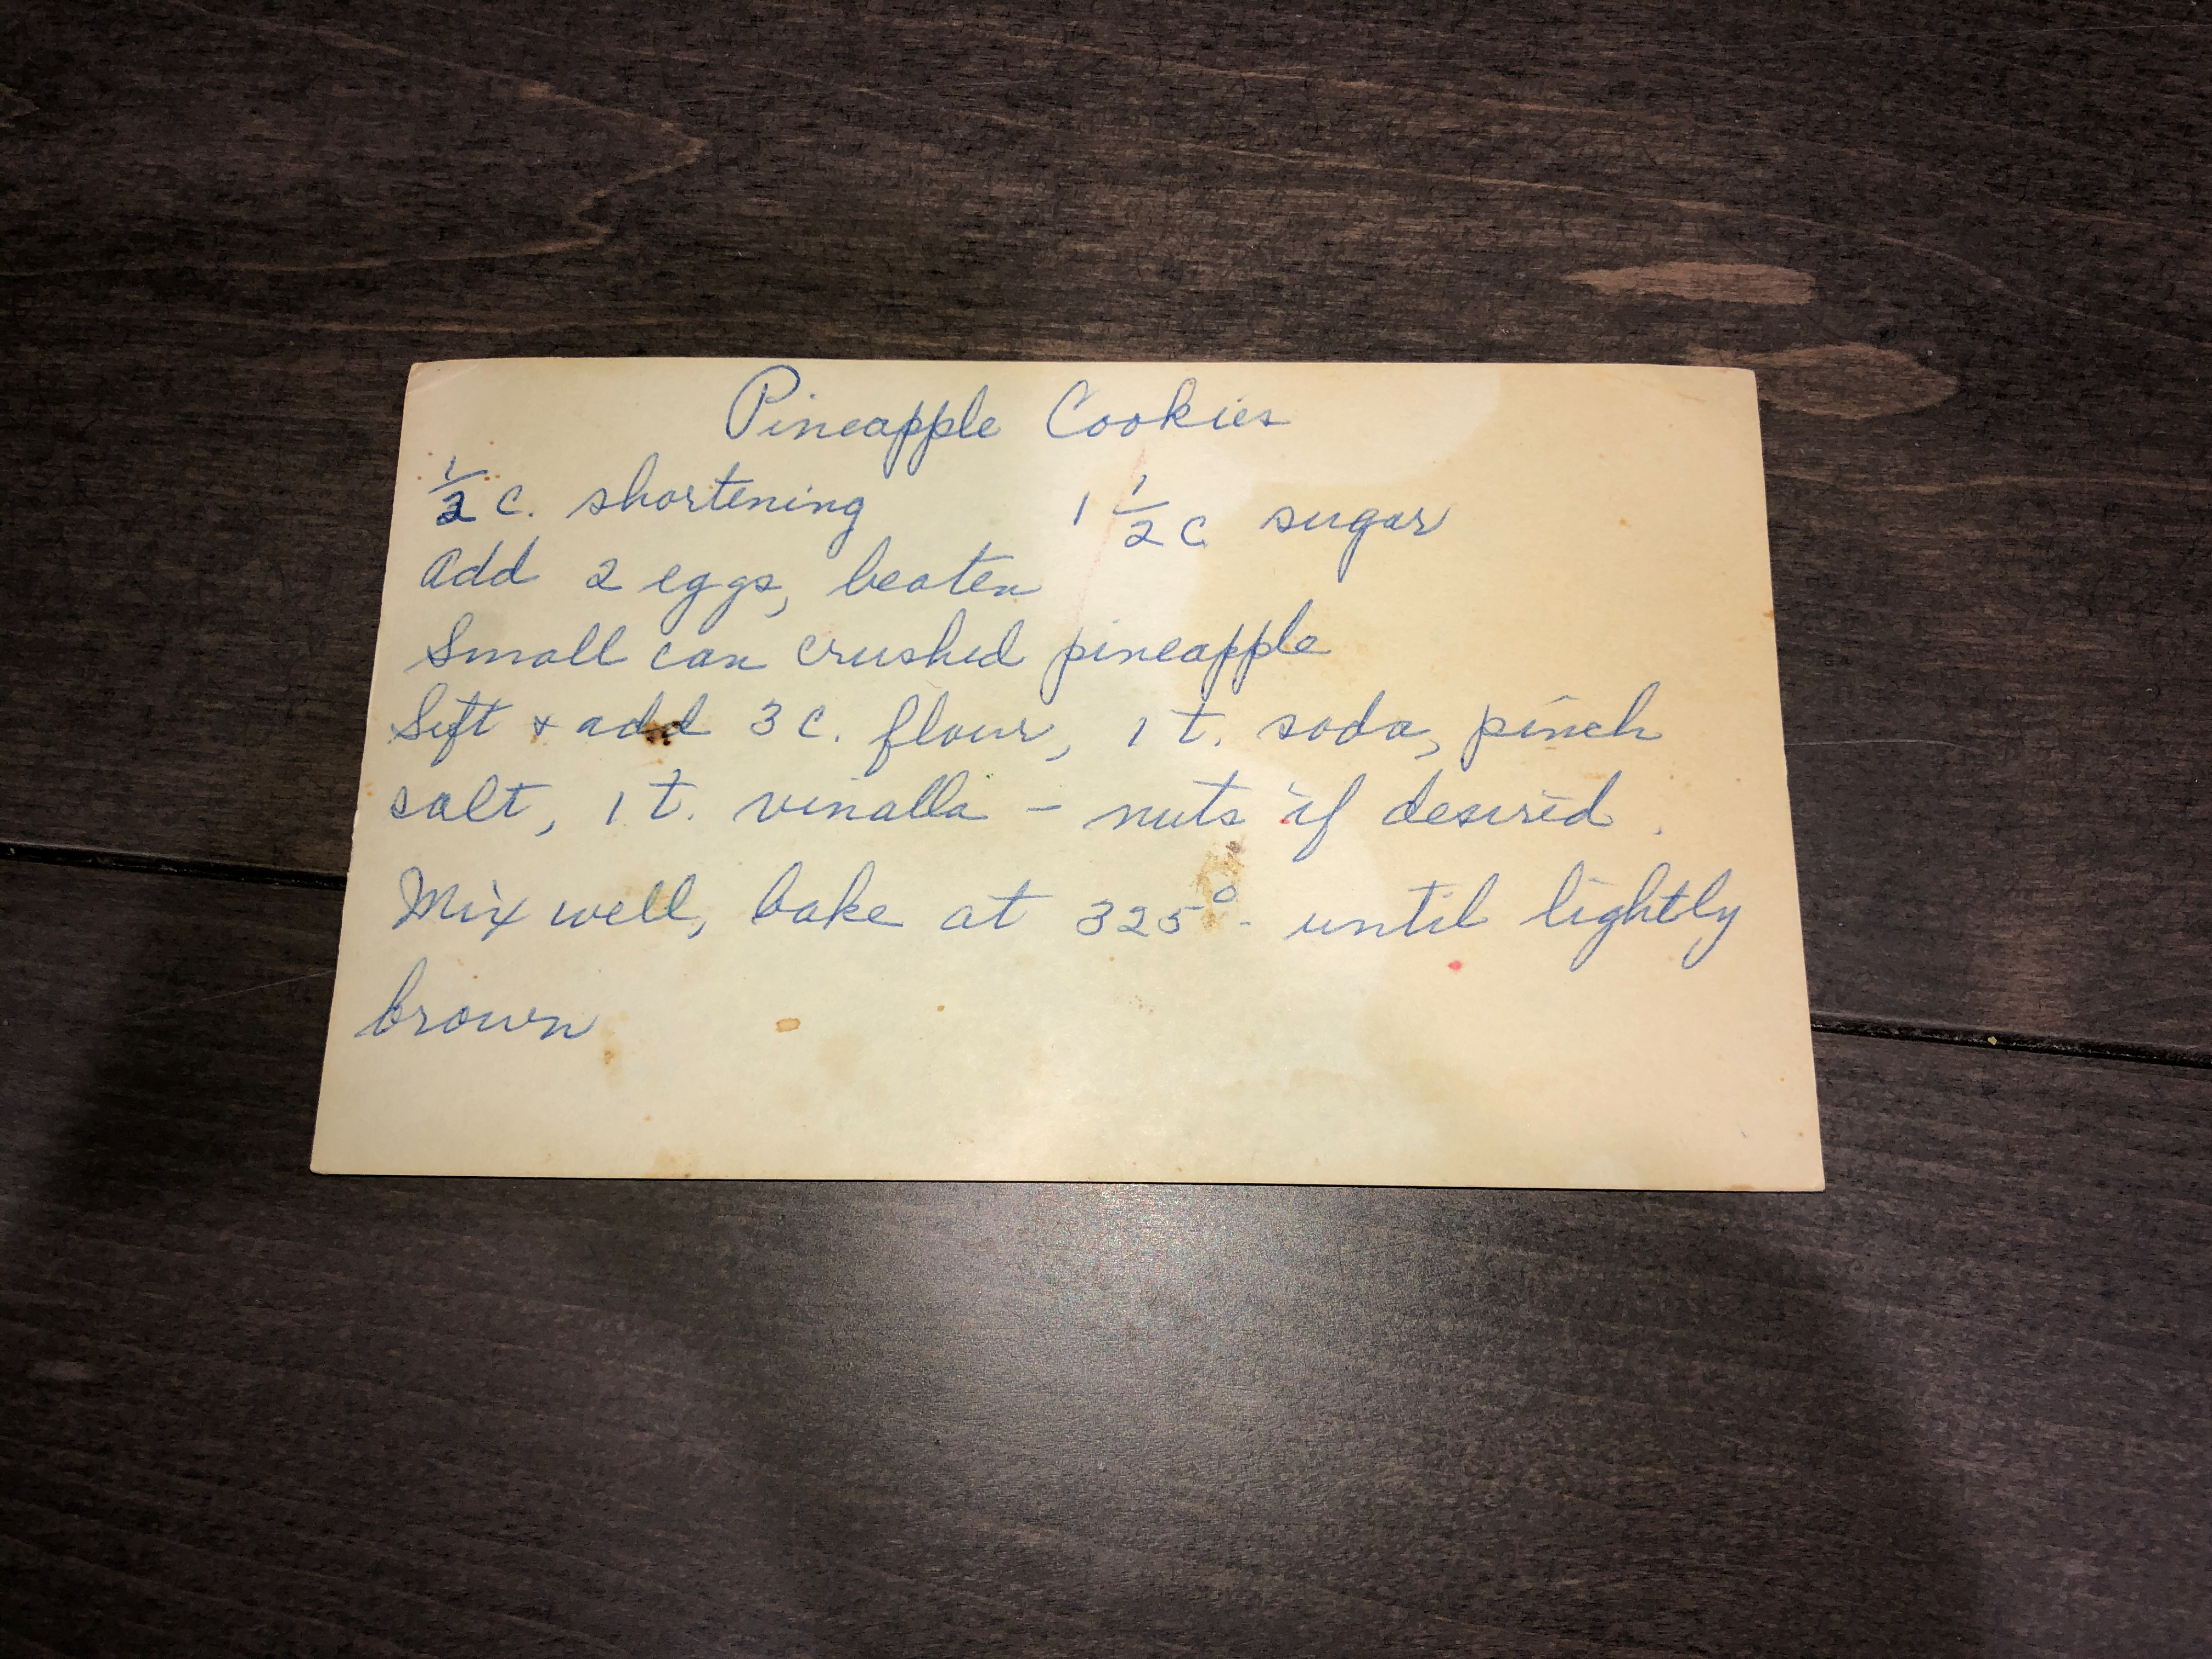 Pineapple Cookies
1/2 c. shortening 1 1/2 c sugar
add 2 eggs, beaten
Small can crushed pineapple
Sift + add 3 c. flour, 1 t. soda, pinch
salt, 1 t. vinalla - nuts if desired.
Mix well, bake at 325° - until lightly
brown